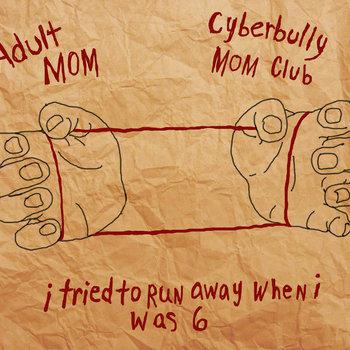 Adult
MOM
Cyberbully
MOM Club
i tried to Run away when i
was 6